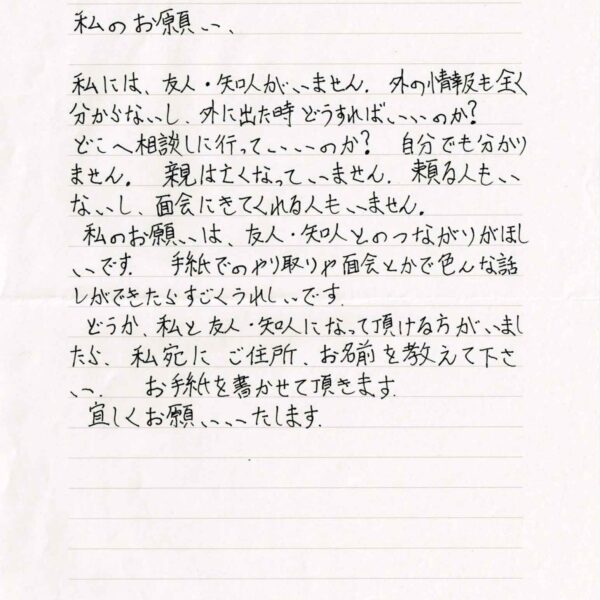 私のお願い、
私には、友人・知人がいません. 外の情報も全く
分からないし、外に出た時どうすればいいのか?
どこへ相談しに行っていいのか? 自分でも分かり
ません. 親は亡くなっていません. 頼る人もい
ないし、面会にきてくれる人もいません.
私のお願いは、友人・知人とのつながりがほし
いです. 手紙でのやり取りや面会とかで色んな話
しができたらすごくうれしいです.
どうか、私と友人・知人になって頂ける方がいまし
たら、私宛に ご住所、お名前を教えて下さ
い. お手紙を書かせて頂きます.
宜しくお願いいたします.